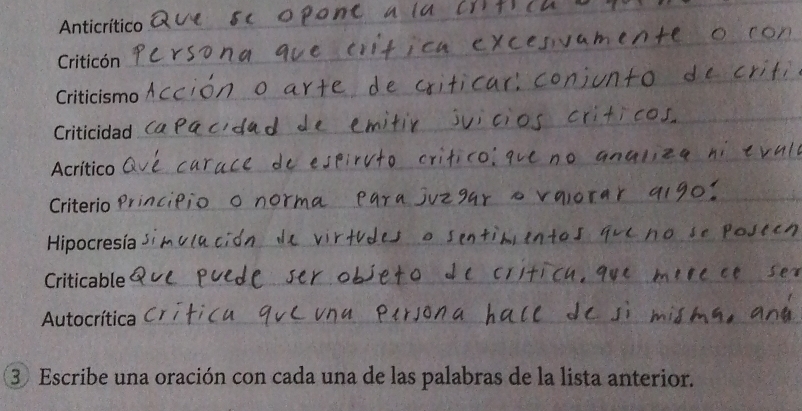 Anticrítico Que se opone a la crítica
Criticón Persona que critica excesivamente o con
Criticismo Acción o arte de criticar: conjunto de criti
Criticidad capacidad de emitir juicios criticos.
Acrítico Qué carace de espiruto critico; que no analiza ni eval
Criterio principio o norma para juzgar o valorar algo:
Hipocresía simulación de virtudes o sentimientos que no se poseen
Criticable Que puede ser objeto de critica, que merece ser
Autocrítica crítica que una persona hace de si misma, aná
3 Escribe una oración con cada una de las palabras de la lista anterior.